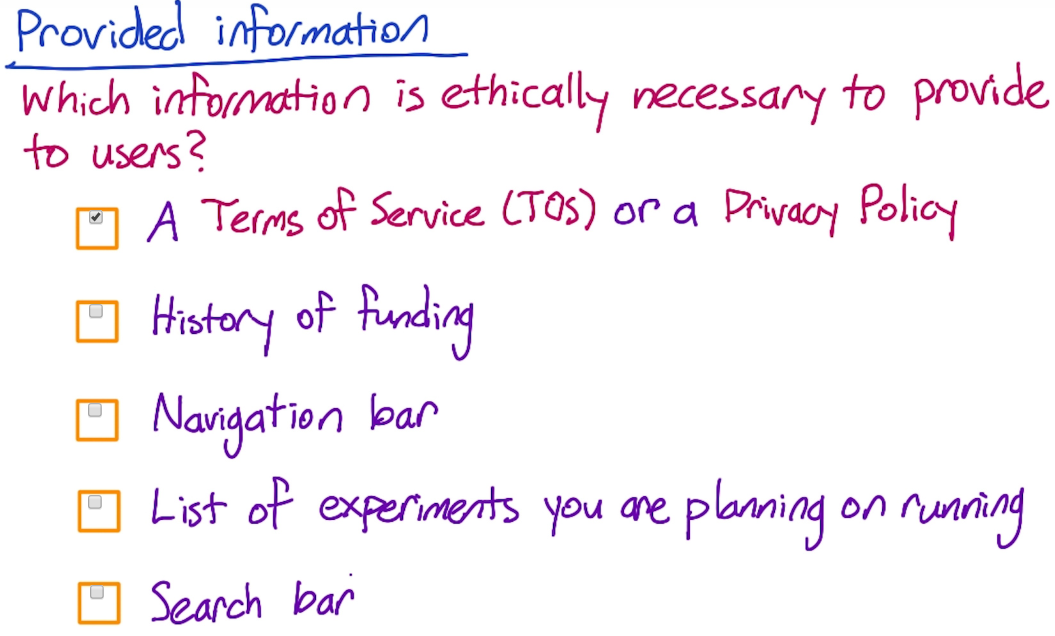 Provided information
Which information is ethically necessary to provide
to users?
A Terms of Service (TOS) or a Privacy Policy
History of funding
Navigation bar
List of experiments you are planning on running
Search bar